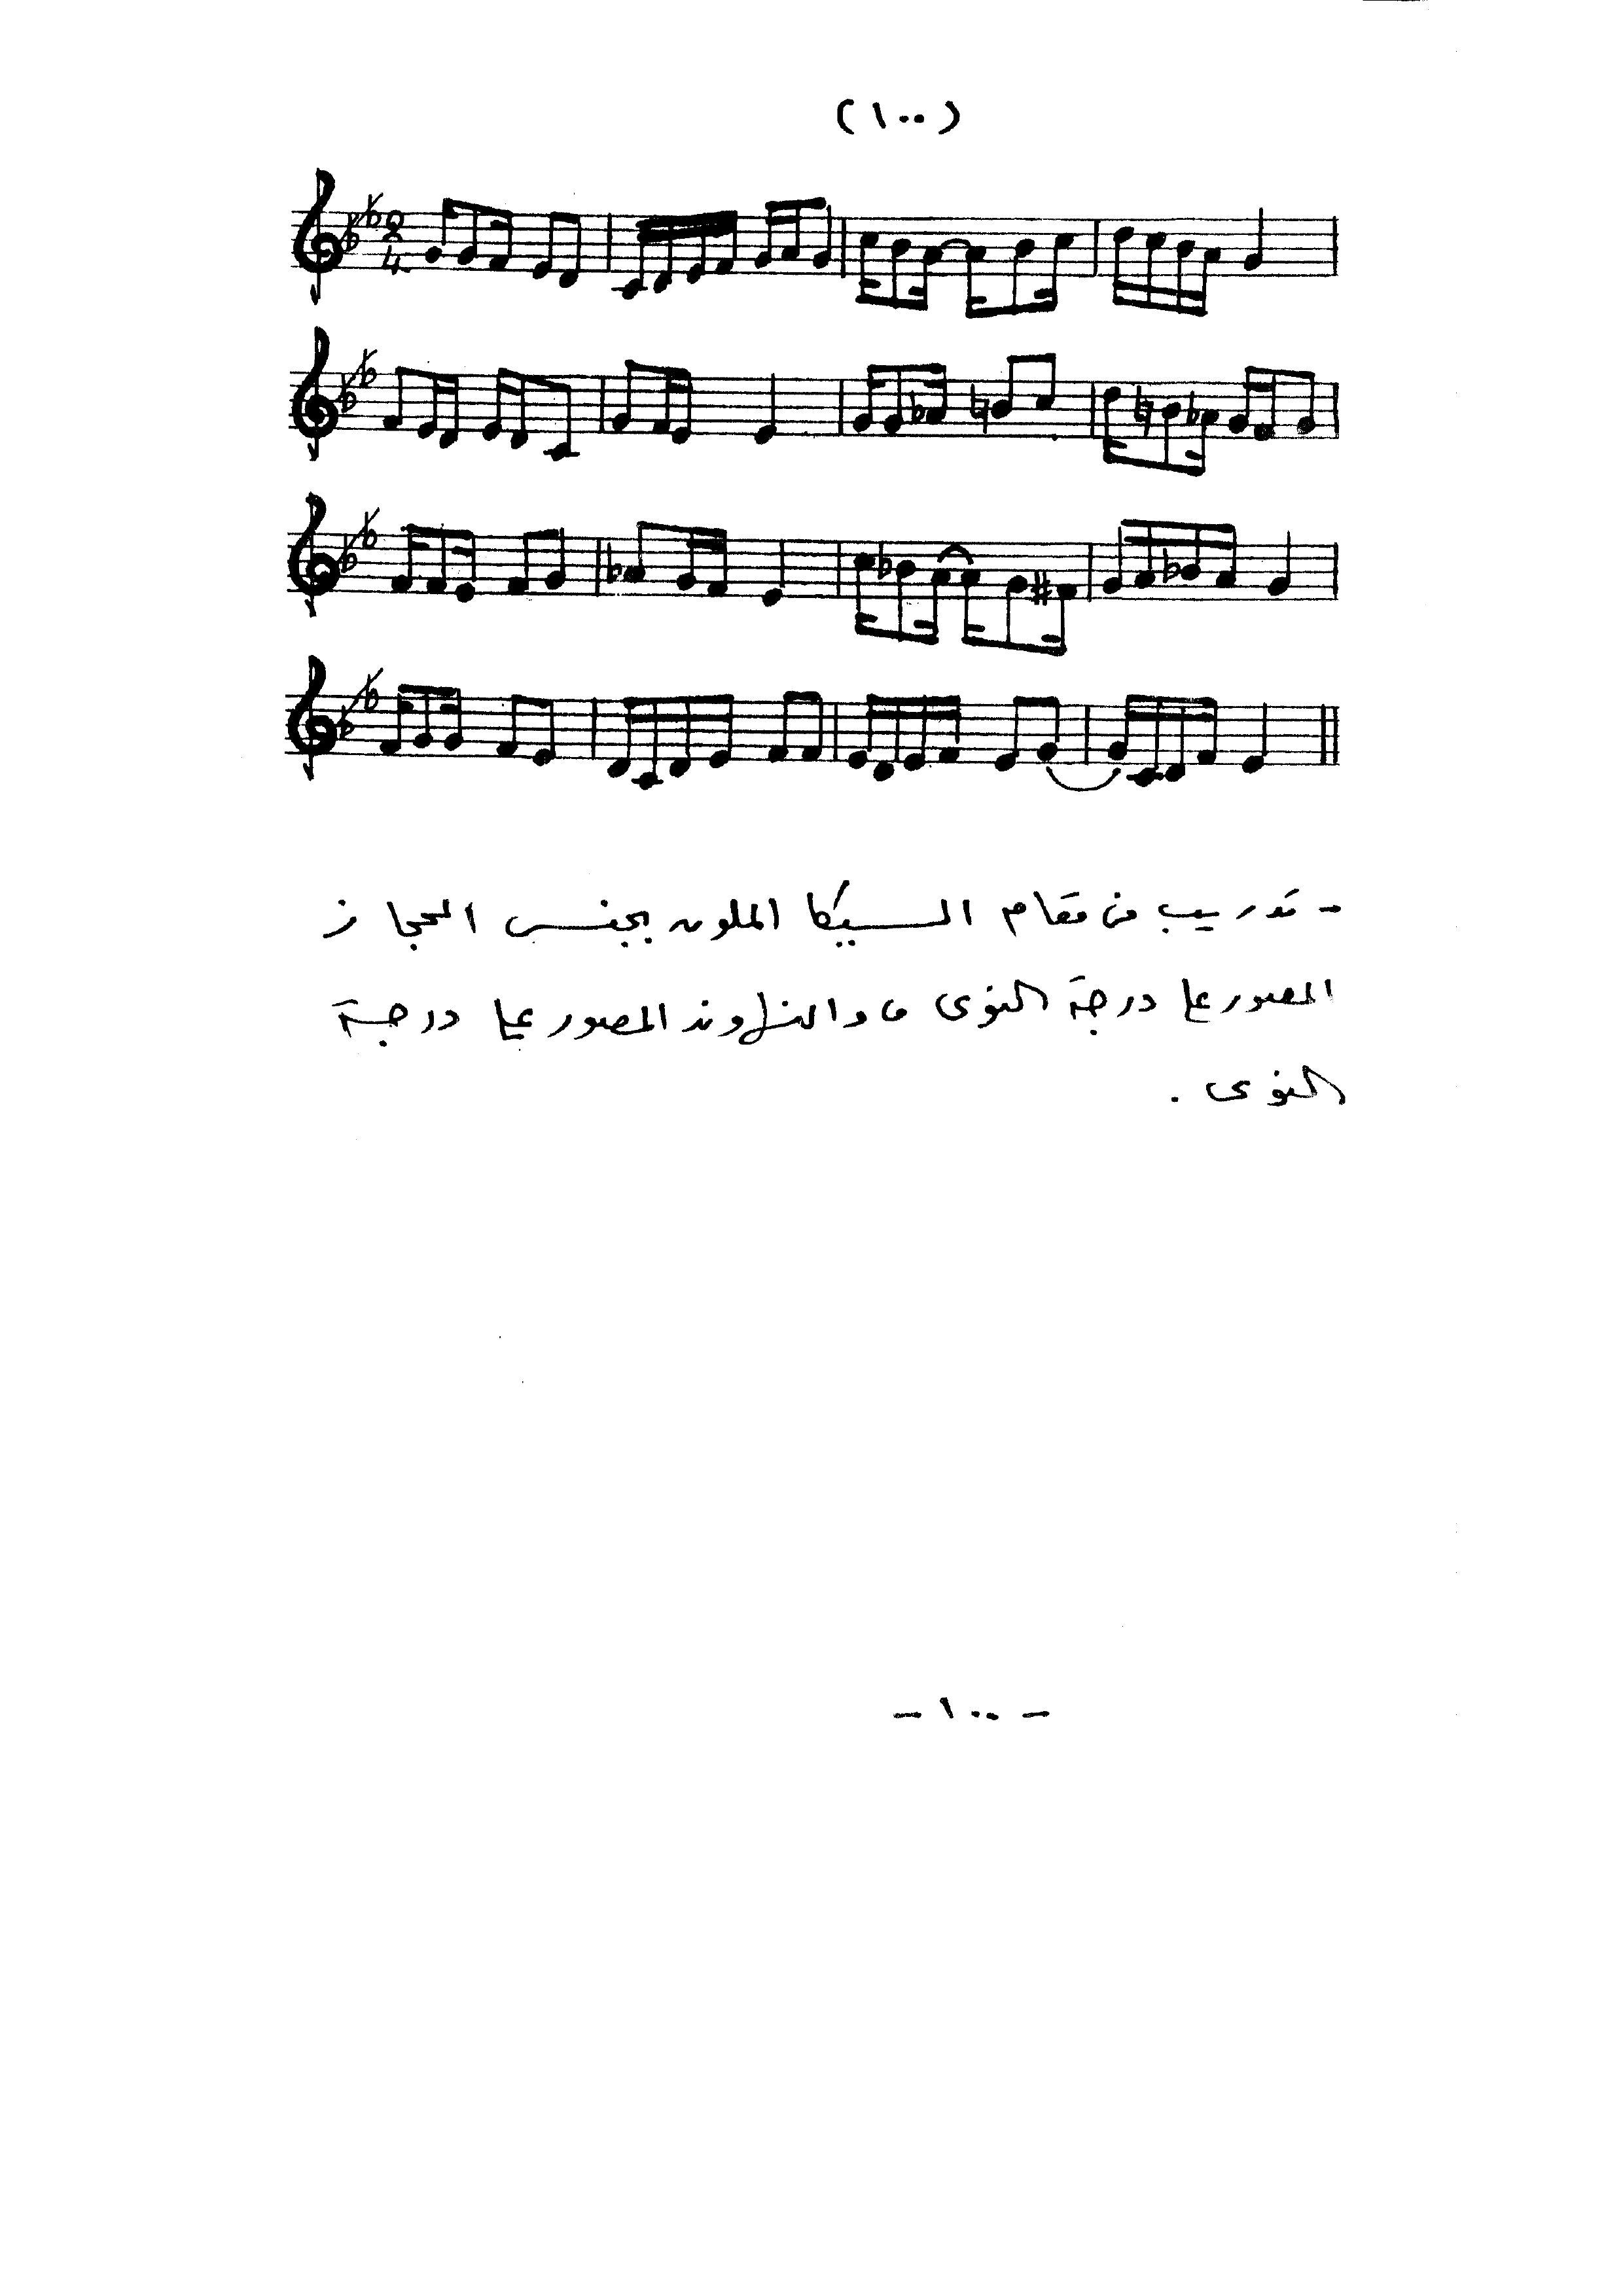 (١٠٠)
2
4
- تدريب من مقام السيكا الملون بجنس الحجاز
المصور على درجة النوى ، والنهاوند المصور على درجة
النوى .
- ١٠٠ -